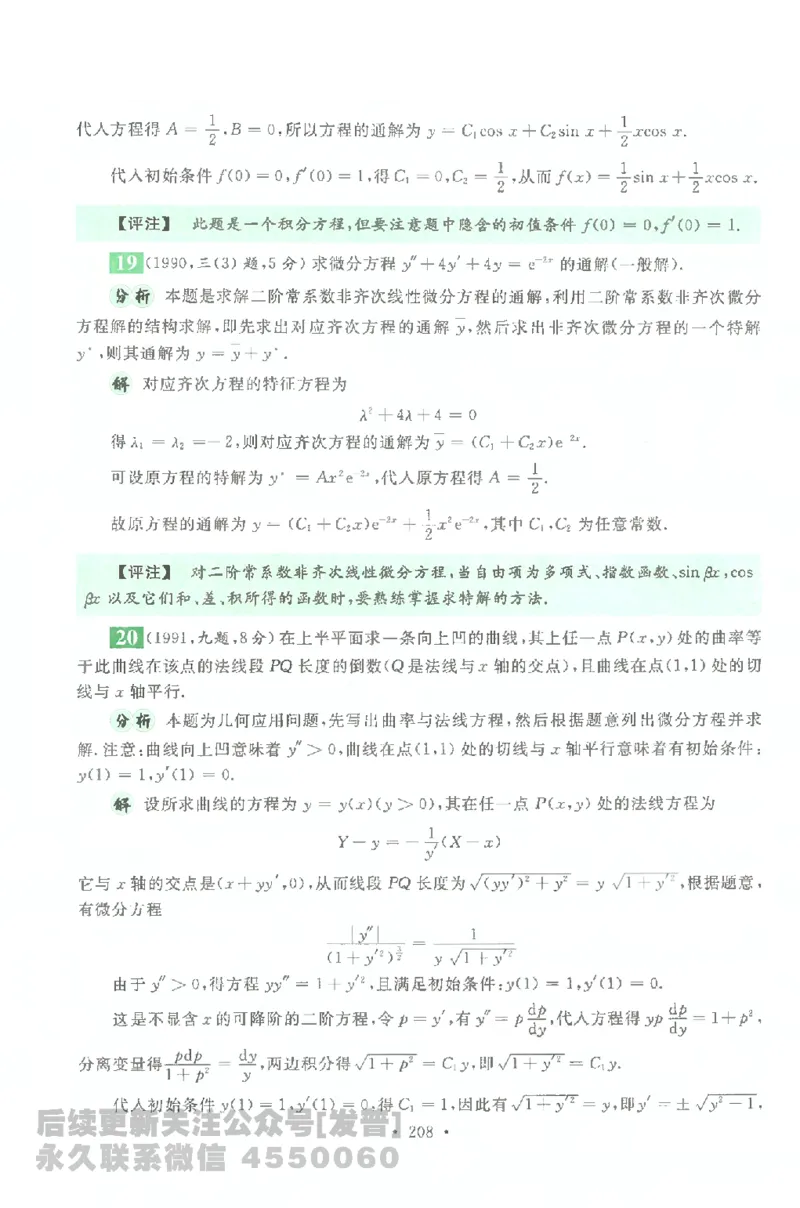 代入方程得 A = 1/2, B = 0,所以方程的通解为 y = C₁cos x + C₂sin x + 1/2 xcos x.
代入初始条件 f(0) = 0, f′(0) = 1,得 C₁ = 0, C₂ = 1/2,从而 f(x) = 1/2 sin x + 1/2 xcos x.
【评注】 此题是一个积分方程,但要注意题中隐含的初值条件 f(0) = 0, f′(0) = 1.
19 (1990,三(3)题,5分) 求微分方程 y″ + 4y′ + 4y = e^(-2x) 的通解(一般解).
分析 本题是求解二阶常系数非齐次线性微分方程的通解,利用二阶常系数非齐次微分
方程解的结构求解,即先求出对应齐次方程的通解 ȳ,然后求出非齐次微分方程的一个特解
y*,则其通解为 y = ȳ + y*.
解 对应齐次方程的特征方程为
λ² + 4λ + 4 = 0
得 λ₁ = λ₂ = -2,则对应齐次方程的通解为 ȳ = (C₁ + C₂x)e^(-2x).
可设原方程的特解为 y* = Ax²e^(-2x),代入原方程得 A = 1/2.
故原方程的通解为 y = (C₁ + C₂x)e^(-2x) + 1/2 x²e^(-2x),其中 C₁,C₂ 为任意常数.
【评注】 对二阶常系数非齐次线性微分方程,当自由项为多项式、指数函数、sin βx, cos
βx 以及它们和、差、积所得的函数时,要熟练掌握求特解的方法.
20 (1991,九题,8分) 在上半平面求一条向上凹的曲线,其上任一点 P(x,y) 处的曲率等
于此曲线在该点的法线段 PQ 长度的倒数(Q 是法线与 x 轴的交点),且曲线在点(1,1) 处的切
线与 x 轴平行.
分析 本题为几何应用问题,先写出曲率与法线方程,然后根据题意列出微分方程并求
解. 注意:曲线向上凹意味着 y″ > 0,曲线在点(1,1) 处的切线与 x 轴平行意味着有初始条件:
y(1) = 1, y′(1) = 0.
解 设所求曲线的方程为 y = y(x)(y > 0),其在任一点 P(x,y) 处的法线方程为
Y - y = -1/y′ (X - x)
它与 x 轴的交点是(x + yy′,0),从而线段 PQ 长度为 √((yy′)² + y²) = y √(1 + y′²),根据题意,
有微分方程
|y″|/(1 + y′²)^(3/2) = 1/(y √(1 + y′²))
由于 y″ > 0,得方程 yy″ = 1 + y′²,且满足初始条件:y(1) = 1, y′(1) = 0.
这是不显含 x 的可降阶的二阶方程,令 p = y′,有 y″ = p dp/dy,代入方程得 yp dp/dy = 1 + p²,
分离变量得 pdp/(1 + p²) = dy/y,两边积分得 √(1 + p²) = C₁y,即 √(1 + y′²) = C₁y.
代入初始条件 y(1) = 1, y′(1) = 0,得 C₁ = 1,因此有 √(1 + y′²) = y,即 y′ = ± √(y² - 1),
后续更新关注公众号[发普]
• 208 •
永久联系微信 4550060